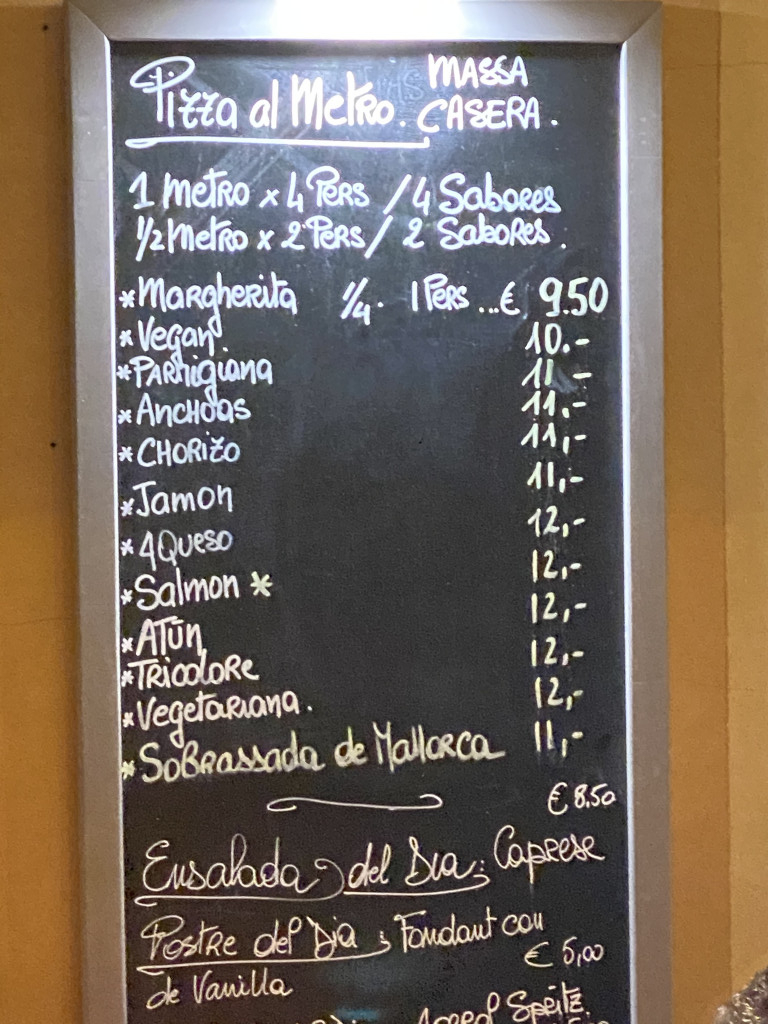 Pizza al Metro. MASSA CASERA.
1 Metro x 4 Pers / 4 Sabores
1/2 Metro x 2 Pers / 2 Sabores.
*Margherita 1/4. 1 Pers ...€ 9.50
*Vegan. 10.-
*Parmigiana 11 -
*Anchoas 11.-
*CHORIZO 11,-
*Jamon 11,-
*4 Queso 12,-
*Salmon * 12,-
*Atún 12,-
*Tricolore 12,-
*Vegetariana. 12,-
*Sobrassada de Mallorca 11,-
€ 8.50
Ensalada del Dia; Caprese
Postre del Dia; Fondant con
€ 5,00
de Vanilla
Aperol Spritz.